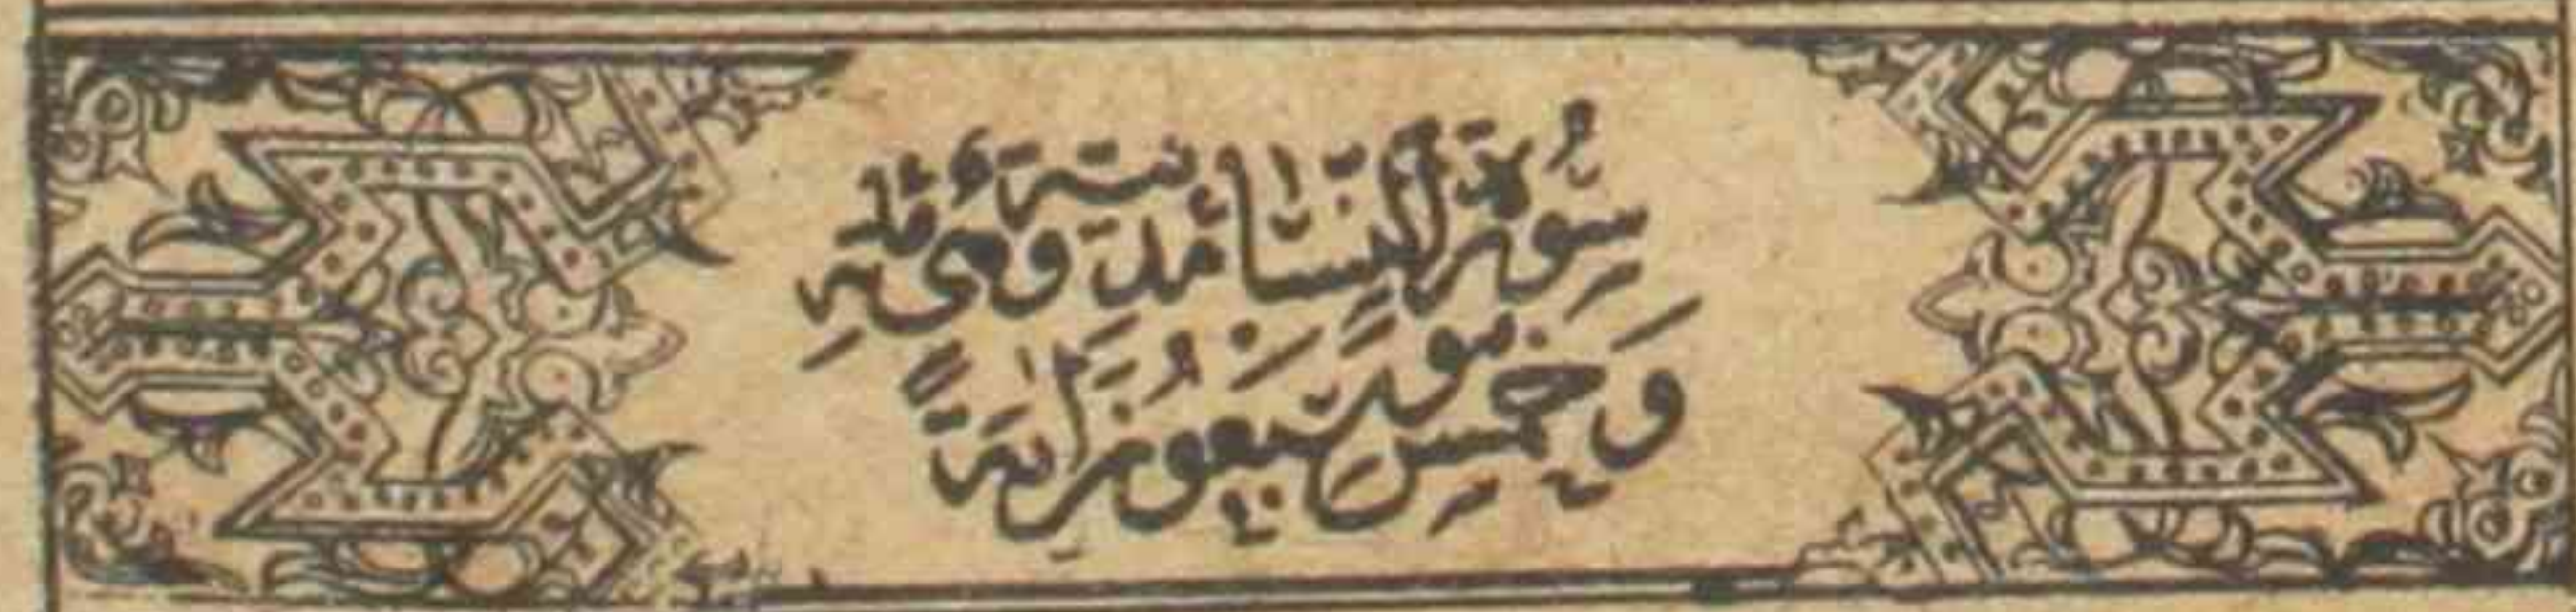 سُورَةُ النِّسَاءِ مَدَنِيَّةٌ وَهِيَ مِائَةٌ
وَخَمْسٌ وَسَبْعُونَ اٰيَةً